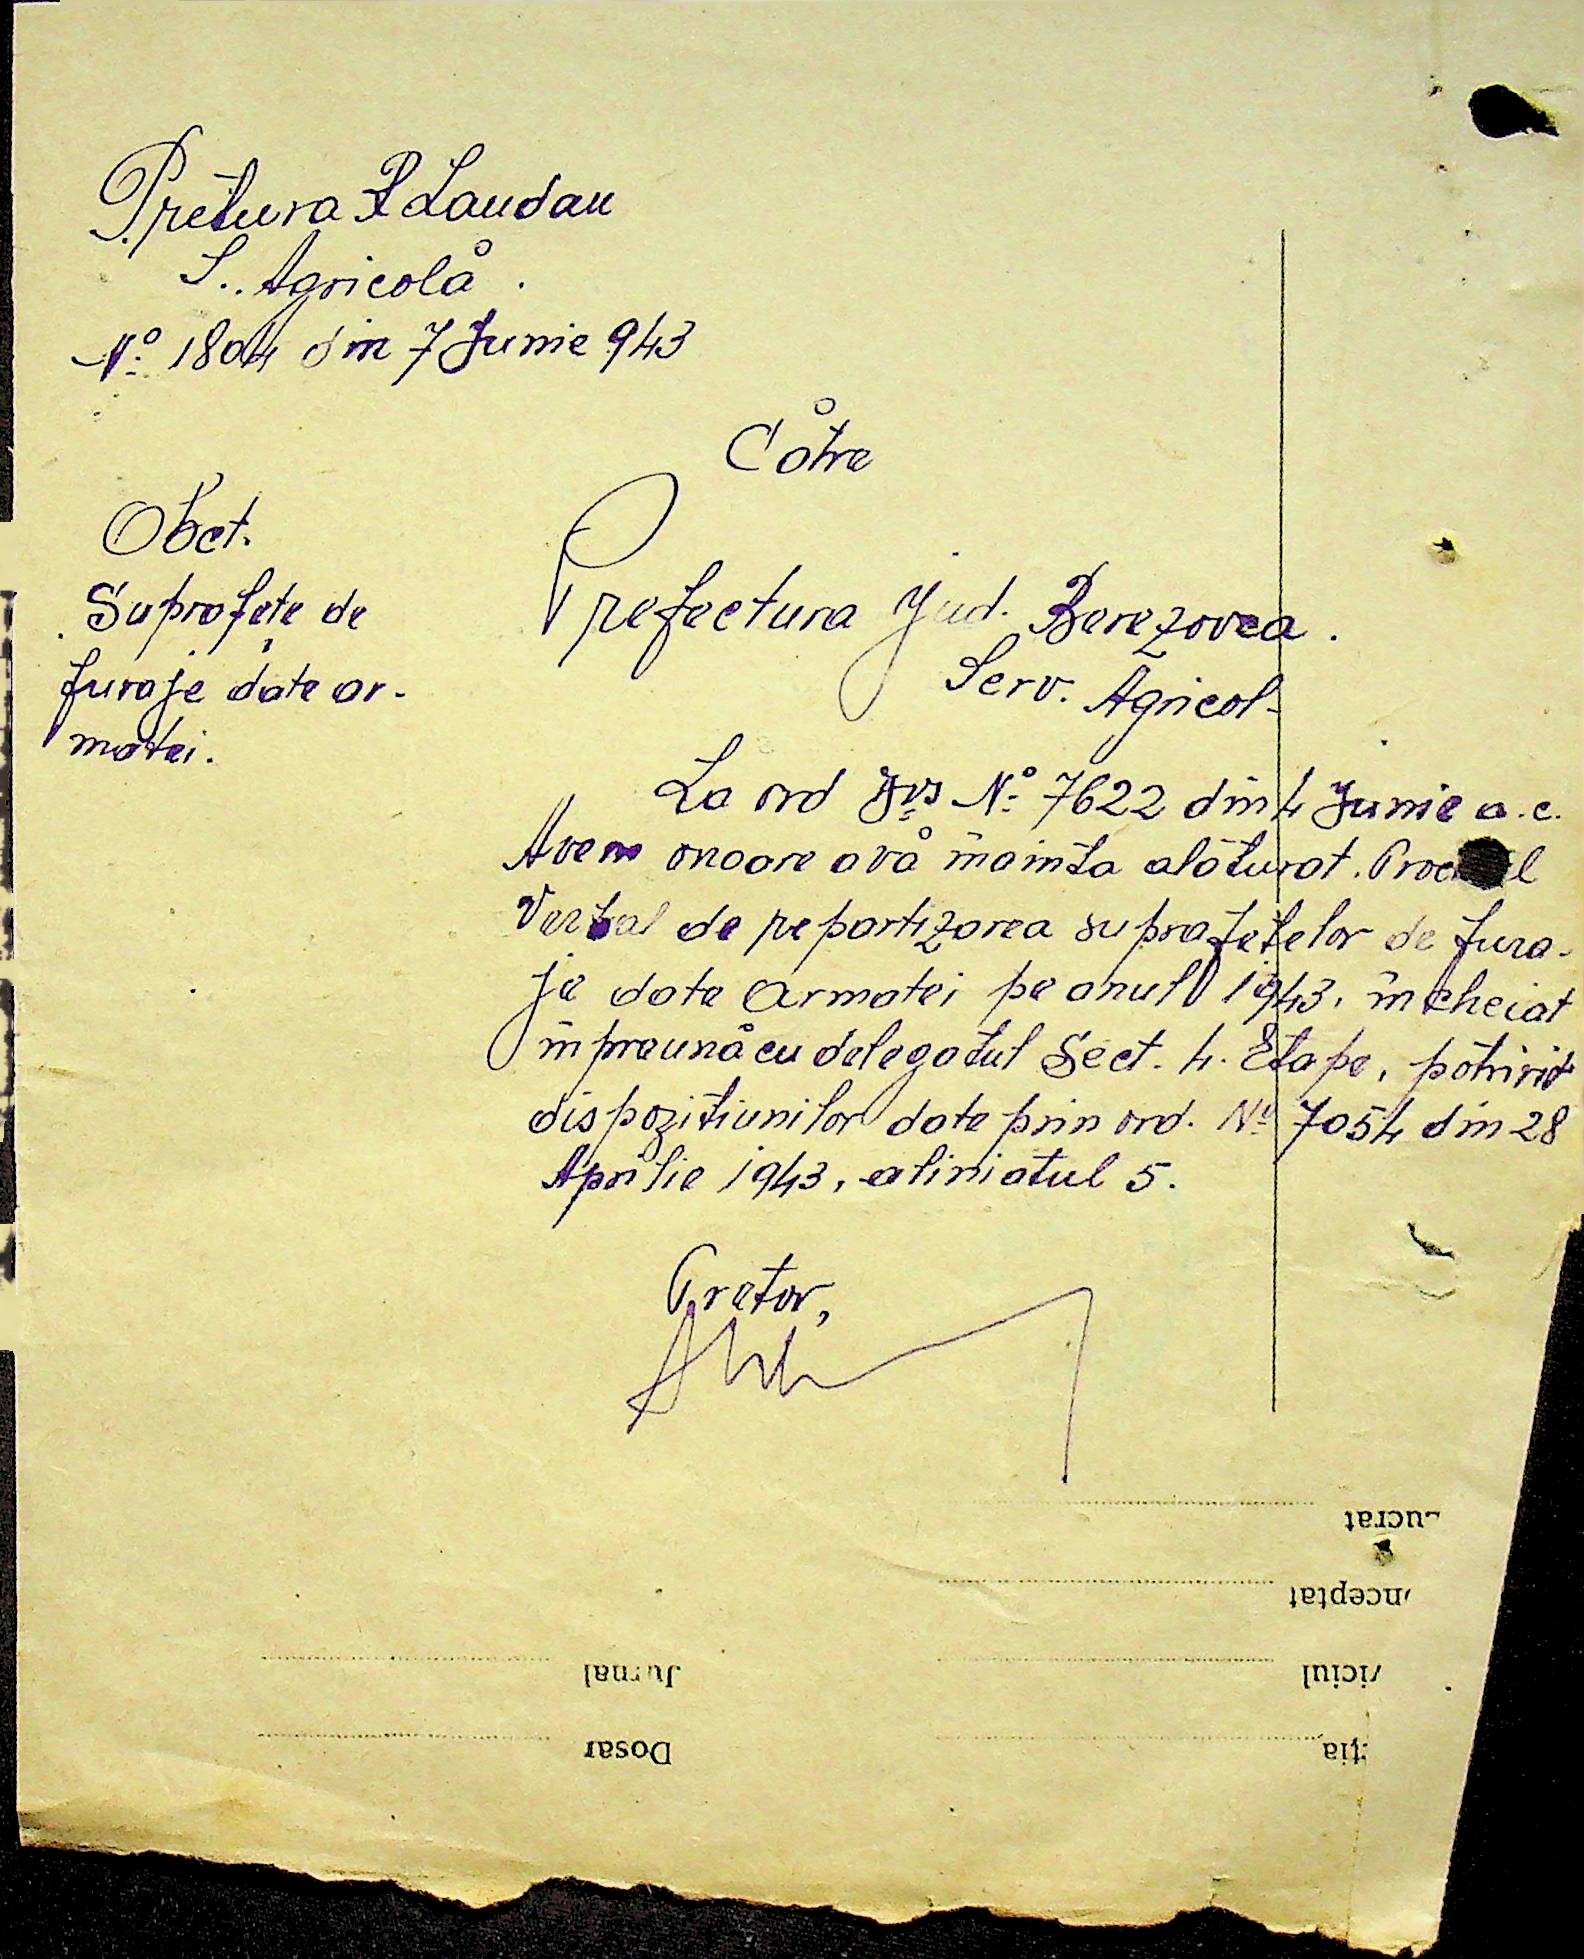 Pretura R Landau
S. Agricolă.
No. 1804 din 7 Junie 943
Cătra
Obct.
Suprafețe de
furaje date ar-
matei.
Prefectura Jud. Berezovca.
Serv. Agricol-
La ord Dvs No. 7622 din 4 Junie a.c.
Avem onoare avă înainta alăturat. Procesul
Verbal de repartizarea suprafețelor de fura-
je date Armatei pe anul 1943, încheiat
înpreună cu delegatul Sect. 4. Etape, potrivit
dispozițiunilor date prin ord. No 7054 din 28
Aprilie 1943, aliniatul 5.
Pretor,
Lucrat
nceptat
viciul
Jurnal
ția
Dosar